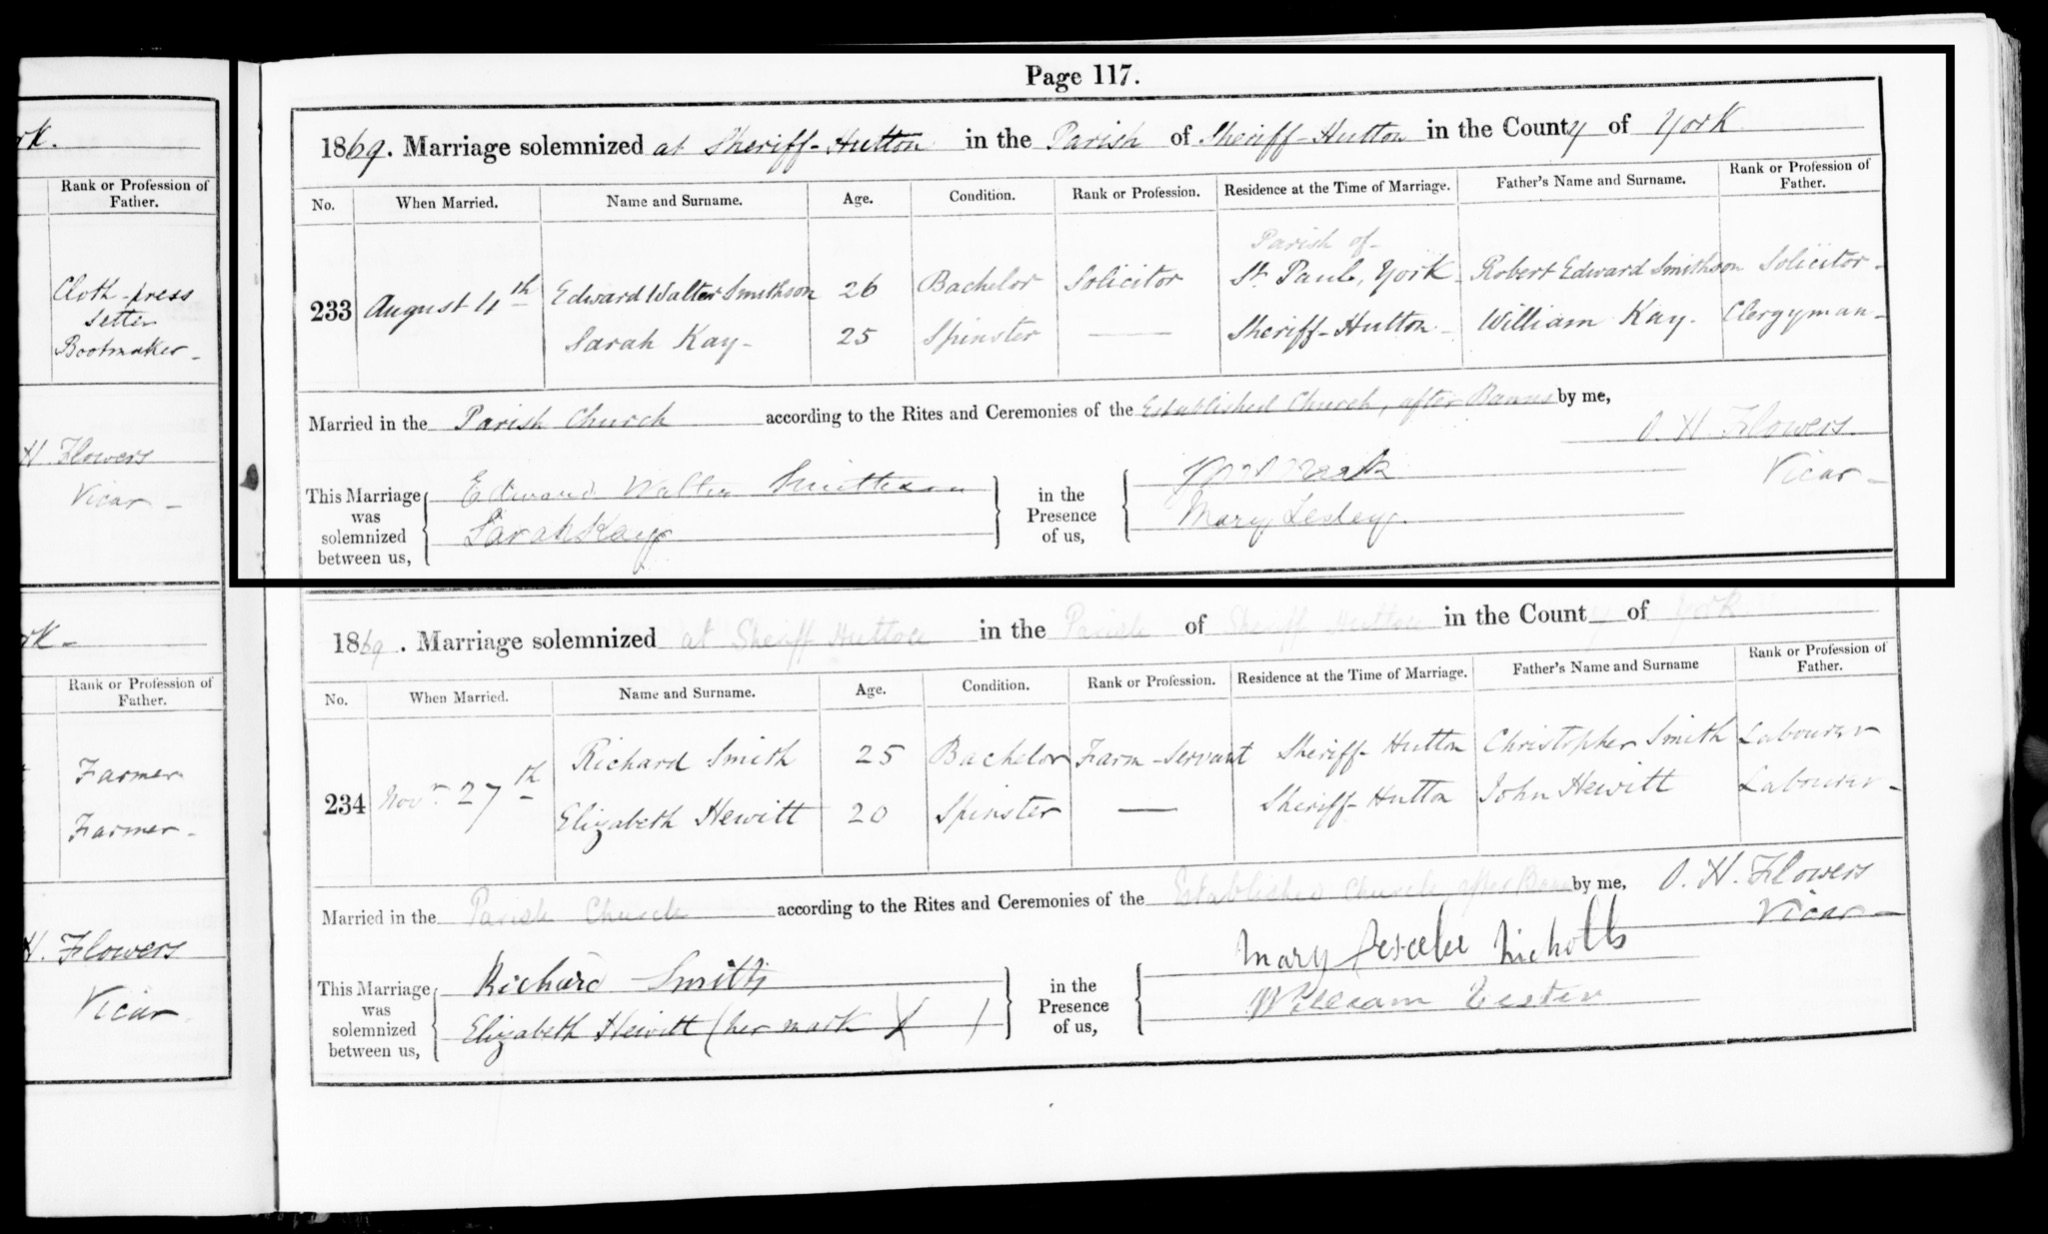 Page 117.
rk.
1869. Marriage solemnized at Sheriff-Hutton in the Parish of Sheriff-Hutton in the County of York
Rank or Profession of Father.
No. When Married. Name and Surname. Age. Condition. Rank or Profession. Residence at the Time of Marriage. Father's Name and Surname. Rank or Profession of Father.
Cloth-press
Setter
Bootmaker-
233 August 4th Edward Walter Smithson 26 Bachelor Solicitor Parish of St. Paul, York Robert Edward Smithson Solicitor-
Sarah Kay- 25 Spinster — Sheriff-Hutton- William Kay. Clergyman-
Married in the Parish Church according to the Rites and Ceremonies of the Established Church, after Banns by me,
O. H. Flowers
Vicar-
H. Flowers
Vicar-
This Marriage was solemnized between us,
Edward Walter Smithson
Sarah Kay
in the Presence of us,
Mary Lesley.
rk-
1869. Marriage solemnized at Sheriff Hutton in the Parish of Sheriff Hutton in the County of York
Rank or Profession of Father.
No. When Married. Name and Surname. Age. Condition. Rank or Profession. Residence at the Time of Marriage. Father's Name and Surname Rank or Profession of Father.
Farmer
Farmer-
234 Novr. 27th Richard Smith 25 Bachelor Farm-Servant Sheriff-Hutton Christopher Smith Labourer
Elizabeth Hewitt 20 Spinster — Sheriff-Hutton John Hewitt Labourer-
Married in the Parish Church according to the Rites and Ceremonies of the Established Church after by me, O. H. Flowers
Vicar-
H. Flowers
Vicar
This Marriage was solemnized between us,
Richard Smith
Elizabeth Hewitt (her mark X )
in the Presence of us,
Mary Nicholls
William